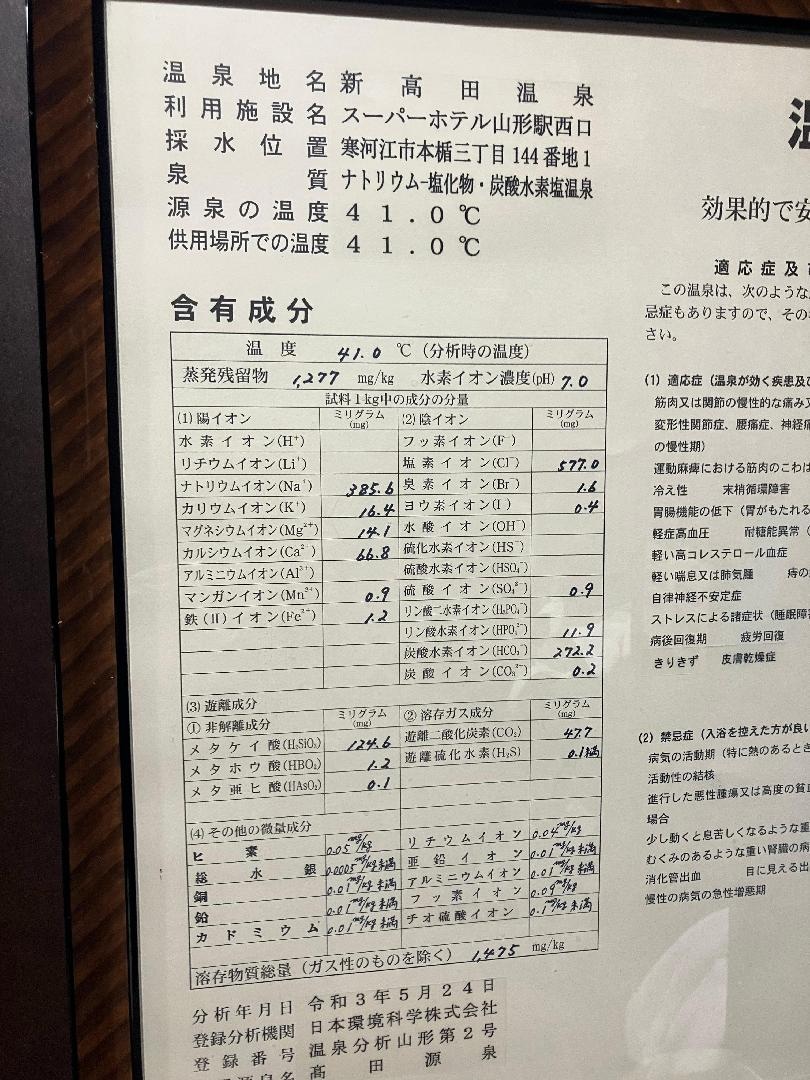 温泉地名 新高田温泉
利用施設名 スーパーホテル山形駅西口
採水位置 寒河江市本楯三丁目144番地1
泉質 ナトリウム-塩化物・炭酸水素塩温泉
源泉の温度 41.0℃
供用場所での温度 41.0℃
含有成分
温度 41.0 ℃(分析時の温度)
蒸発残留物 1,277 mg/kg 水素イオン濃度(pH) 7.0
試料1kg中の成分の分量
(1) 陽イオン ミリグラム(mg) (2) 陰イオン ミリグラム(mg)
水素イオン(H⁺) フッ素イオン(F⁻)
リチウムイオン(Li⁺) 塩素イオン(Cl⁻) 577.0
ナトリウムイオン(Na⁺) 385.6 臭素イオン(Br⁻) 1.6
カリウムイオン(K⁺) 16.4 ヨウ素イオン(I⁻) 0.4
マグネシウムイオン(Mg²⁺) 14.1 水酸イオン(OH⁻)
カルシウムイオン(Ca²⁺) 66.8 硫化水素イオン(HS⁻)
アルミニウムイオン(Al³⁺) 硫酸水素イオン(HSO₄⁻)
マンガンイオン(Mn²⁺) 0.9 硫酸イオン(SO₄²⁻) 0.9
鉄(II)イオン(Fe²⁺) 1.2 リン酸二水素イオン(H₂PO₄⁻)
リン酸水素イオン(HPO₄²⁻) 11.9
炭酸水素イオン(HCO₃⁻) 272.2
炭酸イオン(CO₃²⁻) 0.2
(3) 遊離成分
① 非解離成分 ミリグラム(mg) ② 溶存ガス成分 ミリグラム(mg)
メタケイ酸(H₂SiO₃) 124.6 遊離二酸化炭素(CO₂) 47.7
メタホウ酸(HBO₂) 1.2 遊離硫化水素(H₂S) 0.1未満
メタ亜ヒ酸(HAsO₂) 0.1
(4) その他の微量成分
ヒ素 0.05mg/kg リチウムイオン 0.04mg/kg
総水銀 0.0005mg/kg未満 亜鉛イオン 0.01mg/kg未満
銅 0.01mg/kg未満 アルミニウムイオン 0.01mg/kg未満
鉛 0.01mg/kg未満 フッ素イオン 0.09mg/kg
カドミウム 0.01mg/kg未満 チオ硫酸イオン 0.1mg/kg未満
溶存物質総量(ガス性のものを除く) 1,475 mg/kg
分析年月日 令和3年5月24日
登録分析機関 日本環境科学株式会社
登録番号 温泉分析山形第2号
源泉名 高田源泉
効果的で安
適応症及び
この温泉は、次のような
忌症もありますので、その
さい。
(1) 適応症(温泉が効く疾患及び
筋肉又は関節の慢性的な痛み又
変形性関節症、腰痛症、神経痛
の慢性期)
運動麻痺における筋肉のこわば
冷え性 末梢循環障害
胃腸機能の低下(胃がもたれる
軽症高血圧 耐糖能異常(
軽い高コレステロール血症
軽い喘息又は肺気腫 痔の
自律神経不安定症
ストレスによる諸症状(睡眠障
病後回復期 疲労回復
きりきず 皮膚乾燥症
(2) 禁忌症(入浴を控えた方が良い
病気の活動期(特に熱のあるとき
活動性の結核
進行した悪性腫瘍又は高度の貧血
場合
少し動くと息苦しくなるような重
むくみのあるような重い腎臓の病
消化管出血 目に見える出
慢性の病気の急性増悪期